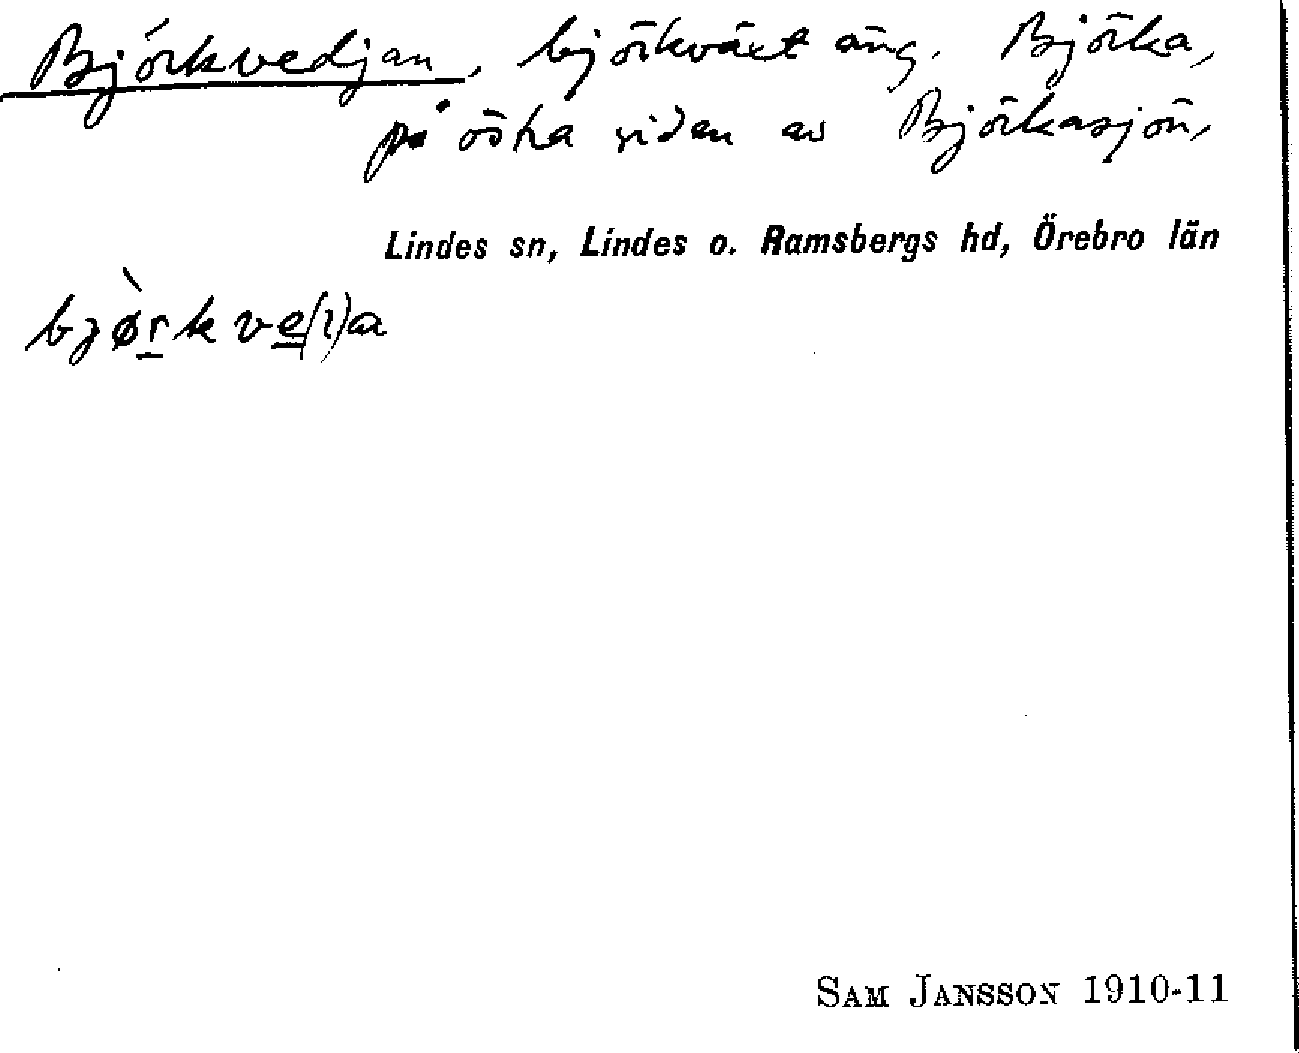 Björkvedjan, björkväxt äng. Björka,
på östra sidan av Björkasjön,
Lindes sn, Lindes o. Ramsbergs hd, Örebro län
bjø̀r̠kve̠(l)a
SAM JANSSON 1910-11